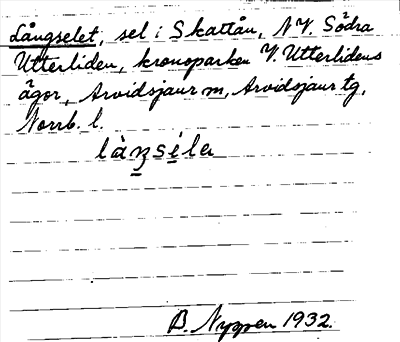 Långselet, sel i Skattån, NV. Södra
Utterliden, kronoparken V. Utterlidens
ägor, Arvidsjaur sn, Arvidsjaur tg,
Norrb. l.
B. Nyggen 1932.